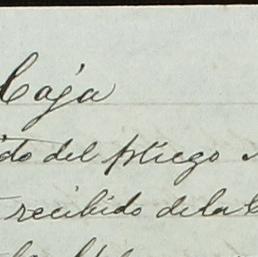 Caja
ido del pliego
recibido de la